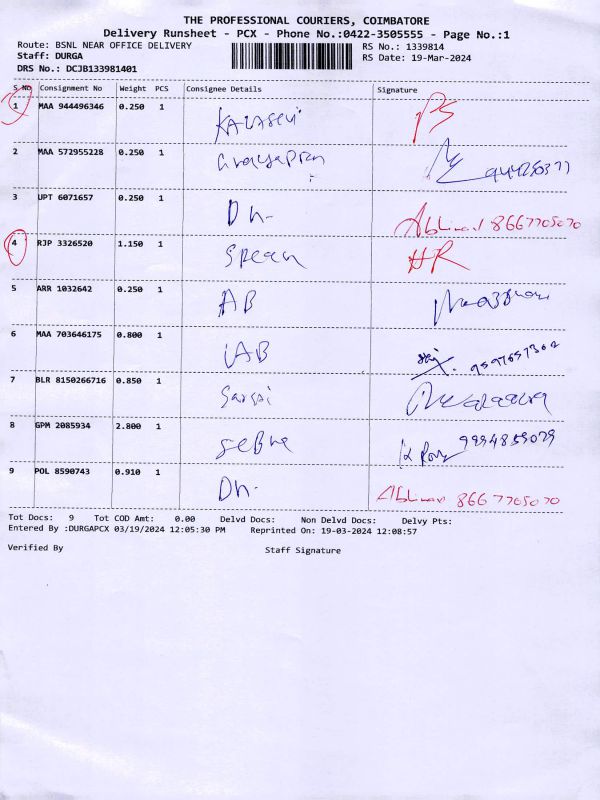 THE PROFESSIONAL COURIERS, COIMBATORE
Delivery Runsheet - PCX - Phone No.:0422-3505555 - Page No.:1
Route: BSNL NEAR OFFICE DELIVERY RS No.: 1339814
Staff: DURGA RS Date: 19-Mar-2024
DRS No.: DCJB133981401
S NO Consignment No Weight PCS Consignee Details Signature
1 MAA 944496346 0.250 1
2 MAA 572955228 0.250 1
3 UPT 6071657 0.250 1 Dn. Abhinav 8667705070
4 RJP 3326520 1.150 1 HR
5 ARR 1032642 0.250 1 AB
6 MAA 703646175 0.800 1 IAB 9597657302
7 BLR 8150266716 0.850 1
8 GPM 2085934 2.800 1 9994859029
9 POL 8590743 0.910 1 Dn. Abhinav 8667705070
Tot Docs: 9 Tot COD Amt: 0.00 Delvd Docs: Non Delvd Docs: Delvy Pts:
Entered By :DURGAPCX 03/19/2024 12:05:30 PM Reprinted On: 19-03-2024 12:08:57
Verified By Staff Signature